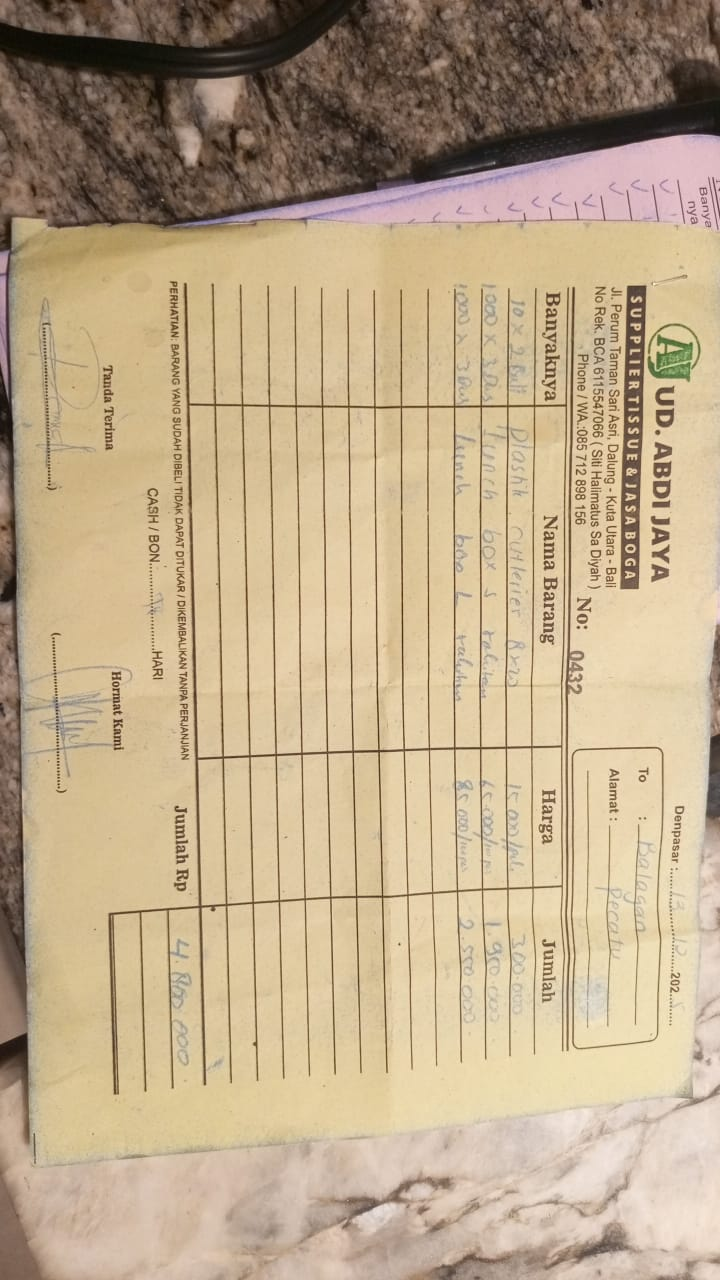 UD. ABDI JAYA
SUPPLIER TISSUE & JASA BOGA
Jl. Perum Taman Sari Asri, Dalung - Kuta Utara - Bali
No Rek. BCA 6115547066 ( Siti Halimatus Sa Diyah )
Phone / WA.:085 712 898 156
No: 0432
Denpasar : 13 12 202
To : Balagan
Alamat : Pecatu
Banyaknya Nama Barang Harga Jumlah
10 x 2 Ball plastik cutleries 8x20 15.000/pak 300.000
1000 x 3 Dus lunch box s 65.000 1.950.000
1000 x 3 Dus lunch box L 85.000 2.550.000
Jumlah Rp 4.800.000
PERHATIAN: BARANG YANG SUDAH DIBELI TIDAK DAPAT DITUKAR / DIKEMBALIKAN TANPA PERJANJIAN
CASH / BON HARI
Tanda Terima Hormat Kami
Banya
nya